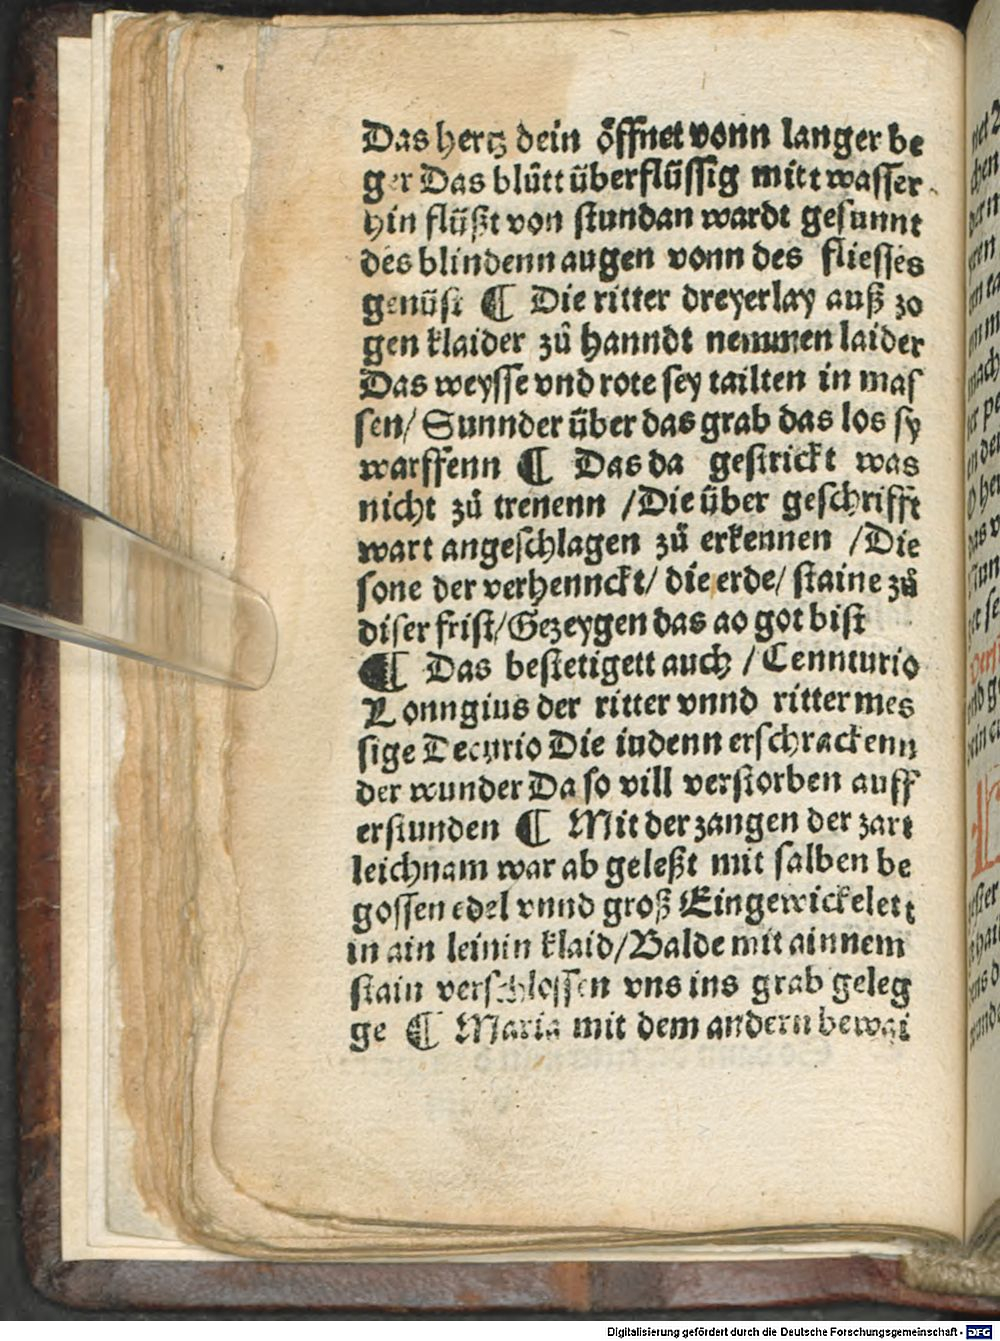 Das hertz dein öffnet vonn langer be
ger Das blůtt überflüssig mitt wasser
hin flüßt von stundan wardt gesunnt
des blindenn augen vonn des fliesses
genüst ¶ Die ritter dreyerlay auß zo
gen klaider zů hanndt nemmen laider
Das weysse vnd rote sey tailten in mas
sen/ Sunnder über das grab das los sy
warffenn ¶ Das da gestrickt was
nicht zů trenenn /Die über geschrifft
wart angeschlagen zů erkennen /Die
sone der verhennckt/ die erde/ staine zů
diser frist/Gezeygen das ao got bist
¶ Das bestetigett auch /Cennturio
Lonngius der ritter vnnd ritter mes
sige Decurio Die iudenn erschrackenn
der wunder Da so vill verstorben auff
erstunden ¶ Mit der zangen der zart
leichnam war ab geleßt mit salben be
gossen edel vnnd groß Eingewickelett
in ain leinin klaid/Balde mit ainnem
stain verschlossen vns ins grab geleg
ge ¶ Maria mit dem andern bewai
Digitalisierung gefördert durch die Deutsche Forschungsgemeinschaft - DFG